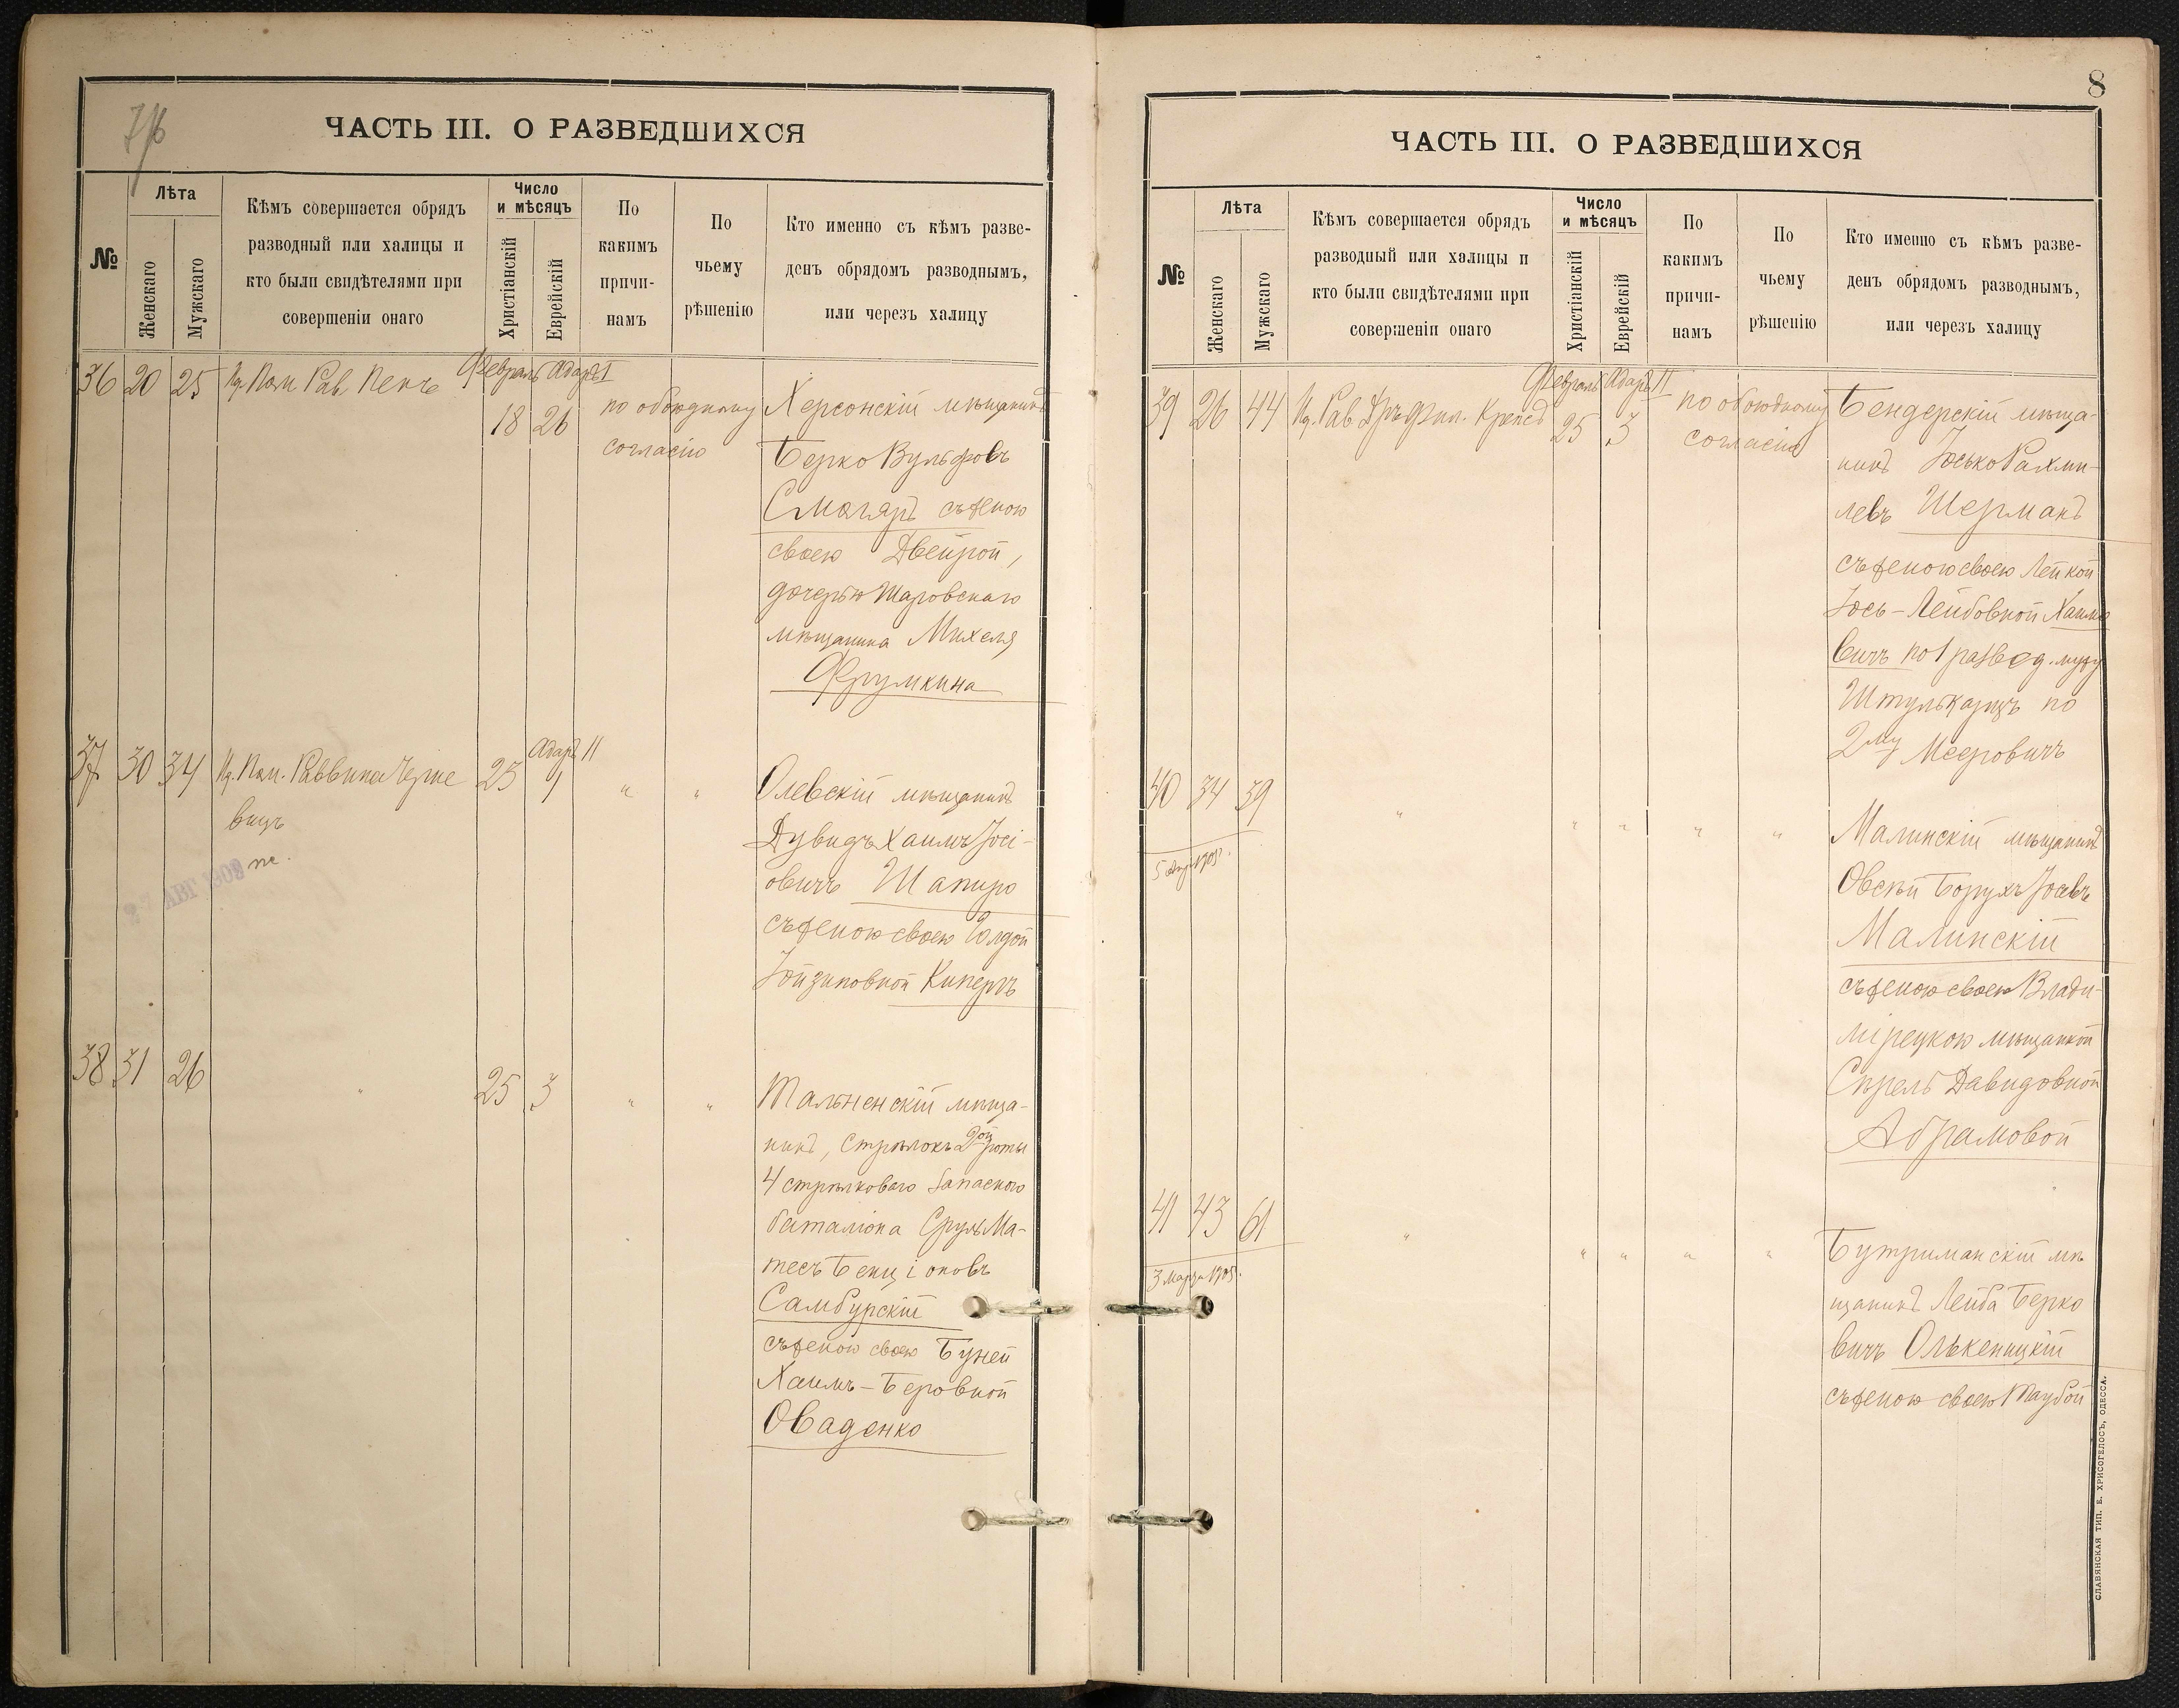 ЧАСТЬ III. О РАЗВЕДШИХСЯ
№
Лѣта
Женскаго
Мужскаго
Кѣмъ совершается обрядъ
разводный или халицы и
кто были свидѣтелями при
совершеніи онаго
Число
и мѣсяцъ
Христіанскій
Еврейскій
По
какимъ
причи-
намъ
По
чьему
рѣшенію
Кто именно съ кѣмъ разве-
денъ обрядомъ разводнымъ,
или черезъ халицу
36 20 25 Пом Рав Пенъ
Февраль Адаръ I
18 26
по обоюдному
согласію
Херсонскій мѣщанинъ
Берко Вульфовъ
Смоляръ съ женою
своею Двейрой,
дочерью Шаровскаго
мѣщанина Михеля
Фрумкина
37 30 34 Пом. Раввина Черне
вицъ
Адаръ II
23 1 " "
Олевскій мѣщанинъ
Дувидъ Хаимъ Іосі-
овичъ Шапиро
съ женою своею Юлдой
Іойзиповной Киперъ
38 31 26 " 25 3 " "
Тальненскій мѣща-
нинъ, стрѣлокъ 2ой роты
4 стрѣлковаго запаснаго
баталіона Сруль Ма-
тесъ Бенціоновъ
Самбурскій
съ женою своею Буней
Хаимъ-Беровной
Оваденко
8
ЧАСТЬ III. О РАЗВЕДШИХСЯ
№
Лѣта
Женскаго
Мужскаго
Кѣмъ совершается обрядъ
разводный или халицы и
кто были свидѣтелями при
совершеніи онаго
Число
и мѣсяцъ
Христіанскій
Еврейскій
По
какимъ
причи-
намъ
По
чьему
рѣшенію
Кто именно съ кѣмъ разве-
денъ обрядомъ разводнымъ,
или черезъ халицу
39 26 44 Рав Дръ Фил. Крепсъ
Февраль Адаръ II
25 3
по обоюдному
согласію
Бендерскій мѣща-
нинъ Іосько Рахми-
левъ Шерманъ
съ женою своею Лейкой
Іось-Лейбовной Хаимо
вичъ по 1 развод. мужу
по
2му Мееровичъ
40 34 39 " " " " "
1905г.
Малинскій мѣщанинъ
Овсѣй Борухъ Іосевъ
Малинскій
съ женою своею Влади-
мірецкою мѣщанкой
Сирель Давидовной
Абрамовой
41 43 61 " " " " "
3 марта 1905г.
Бутриманскій мѣ
щанинъ Лейба Берко
вичъ Олькеницкій
съ женою своею Таубой
СЛАВЯНСКАЯ ТИП. Е. ХРИСОГЕЛОСЪ, ОДЕССА.